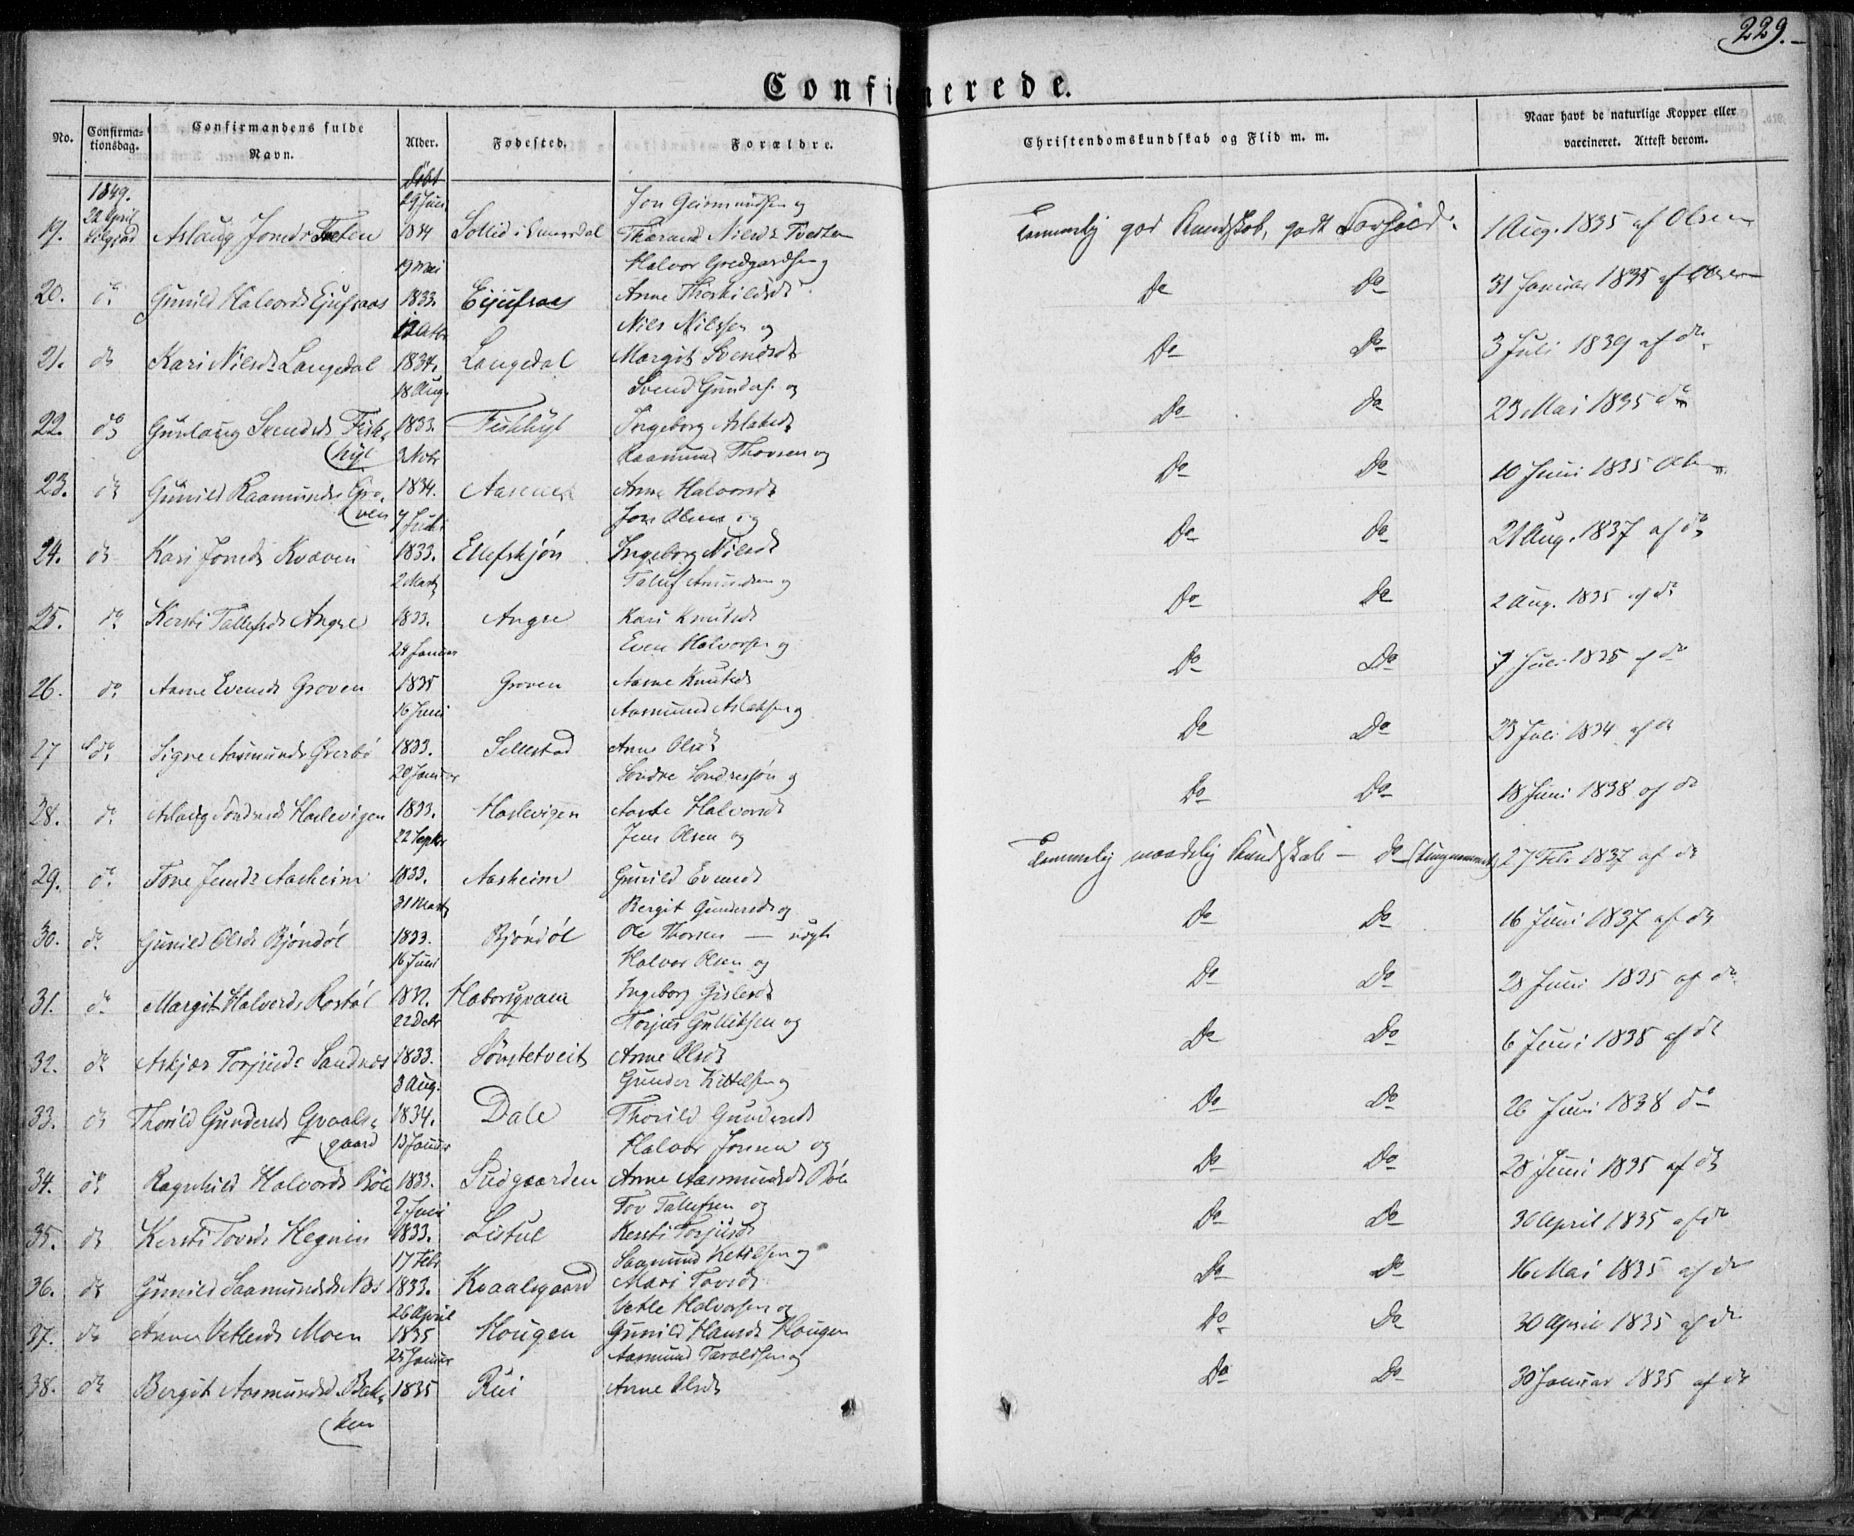 229.
Confirmerede.
No. Confirmationsdag. Confirmandens fulde Navn. Alder. Fødested. Forældre. Christendomskundskab og Flid m. m. Naar havt de naturlige Kopper eller vaccineret. Attest derom.
Døbt
1849. 29 Juni Jon Geirmundsen og
22 April
19. Aslaug Jonsd. 1834 Sollid i Thorand Nielsd. Tvedten Temmelig god Kundskab, godt Forhold. 1 Aug. 1835 af Olsen
19 Mai Halvor Gredgardsen og
20. do Gunild Halvorsd. Ejufsaas 1833. Ejufsaas Anne Thorkildsd. Do Do 31 Januar 1835 af Olsen
12 Octbr Nils Nilssen og
21. do Kari Nilsd. Langedal 1834. Langedal Margit Svendsd. Do Do 3 Juli 1839 af do
18 Aug. Svend Gunders. og
22. do Gunlaug Svendsd. Fisk- 1833. Fiskhyl Ingeborg Aslaksd. Do Do 23 Mai 1835 do
hyl 2 Novbr Raamund Thovsen og
23. do Gunild Raamundsd. Gro- 1834. Anne Halvorsd. Do Do 10 Juni 1835 Olsen
ven 7 Juli Jon Olsen og
24. do Kari Jonsd. Kvaven 1833. Ellefskjøn Ingeborg Nilsd. Do Do 21 Aug. 1837 af do
2 Marts Tallef Amundsen og
25. do Kersti Tallefsd. Angre 1833. Angre Kari Knutsd. Do Do 2 Aug. 1835 af do
24 Januar Even Halvorsen og
26. do Aane Evensd. Groven 1835 Groven Aane Knutsd. Do Do 7 Juli 1835 af do
16 Juni Aasmund Aslaksen og
27 do Signe Aasmundsd. Øverbø 1833. Sellestad Anne Olsd. Do Do 23 Juli 1834 af do
20 Januar Sondre Sondresøn og
28. do Aslaug Sondresd. Haslevigen 1833. Haslevigen Aaste Halvorsd. Do Do 18 Juni 1838 af do
22 Septbr Jens Olsen og
29. do Tone Jensd. Aasheim 1833. Aasheim Gunild Evensd. Temmelig maadelig Kundskab — do (tungnemmet) 27 Feb 1837 af do
31 Marts Bergit Gundersd. og
30. do Gunild Olsd. Bjøndøl 1833. Bjøndøl Ole Thorsen — uægte Do Do 16 Juni 1837 af do
16 Juni Halvor Olsen og
31. do Margit Halvorsd. Rostøl 1832. Haborsqvam Ingeborg Gislesd. Do Do 28 Juni 1835 af do
22 Decbr Torjus Gulliksen og
32. do Askjær Torjusd. Sandnæs 1833. Søvstetveit Anne Olsd. Do Do 6 Juni 1838 af do
3 Aug. Gunder Kittelsen og
33. do Thorild Gundersd. Gvaals- 1834. Dale Thorild Gundersd. Do Do 26 Juni 1838 do
gaard 13 Januar Halvor Jonsen og
34. do Ragnhild Halvorsd. Bøle 1833. Sudgaarden Anne Aasmundsd. Bøle Do Do 28 Juni 1835 af do
2 Juni Tov Tallefsen og
35. do Kersti Tovsd. Hegnin 1833. Listul Kersti Torjusd. Do Do 30 April 1835 af do
17 Febr Saamund Ketilsen og
36. do Gunild Saamundsd. Næs 1833. Kvaalsgaard Mari Tovsd. Do Do 16 Mai 1835 af do
26 April Vetle Halvorsen og
37. do Anne Vetlesd. Moen 1835 Hougen Gunild Hansd. Hougen Do Do 30 April 1835 af do
25 Januar Aasmund Taraldsen og
38. do Bergit Aasmundsd. Bak- 1835 Rui Anne Olsd. Do Do 30 Januar 1835 af do
ken